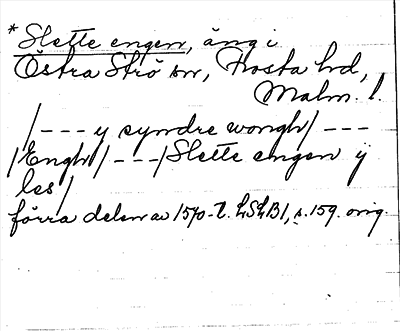 * Slette engen, äng i
Östra Strö sn, Frosta hd,
Malm. l.
/--- y syndre wongh/ ---
/Engh/ ---/Slette engen y
les/
förra delen av 1570-t. LSLB1, s. 159. orig.